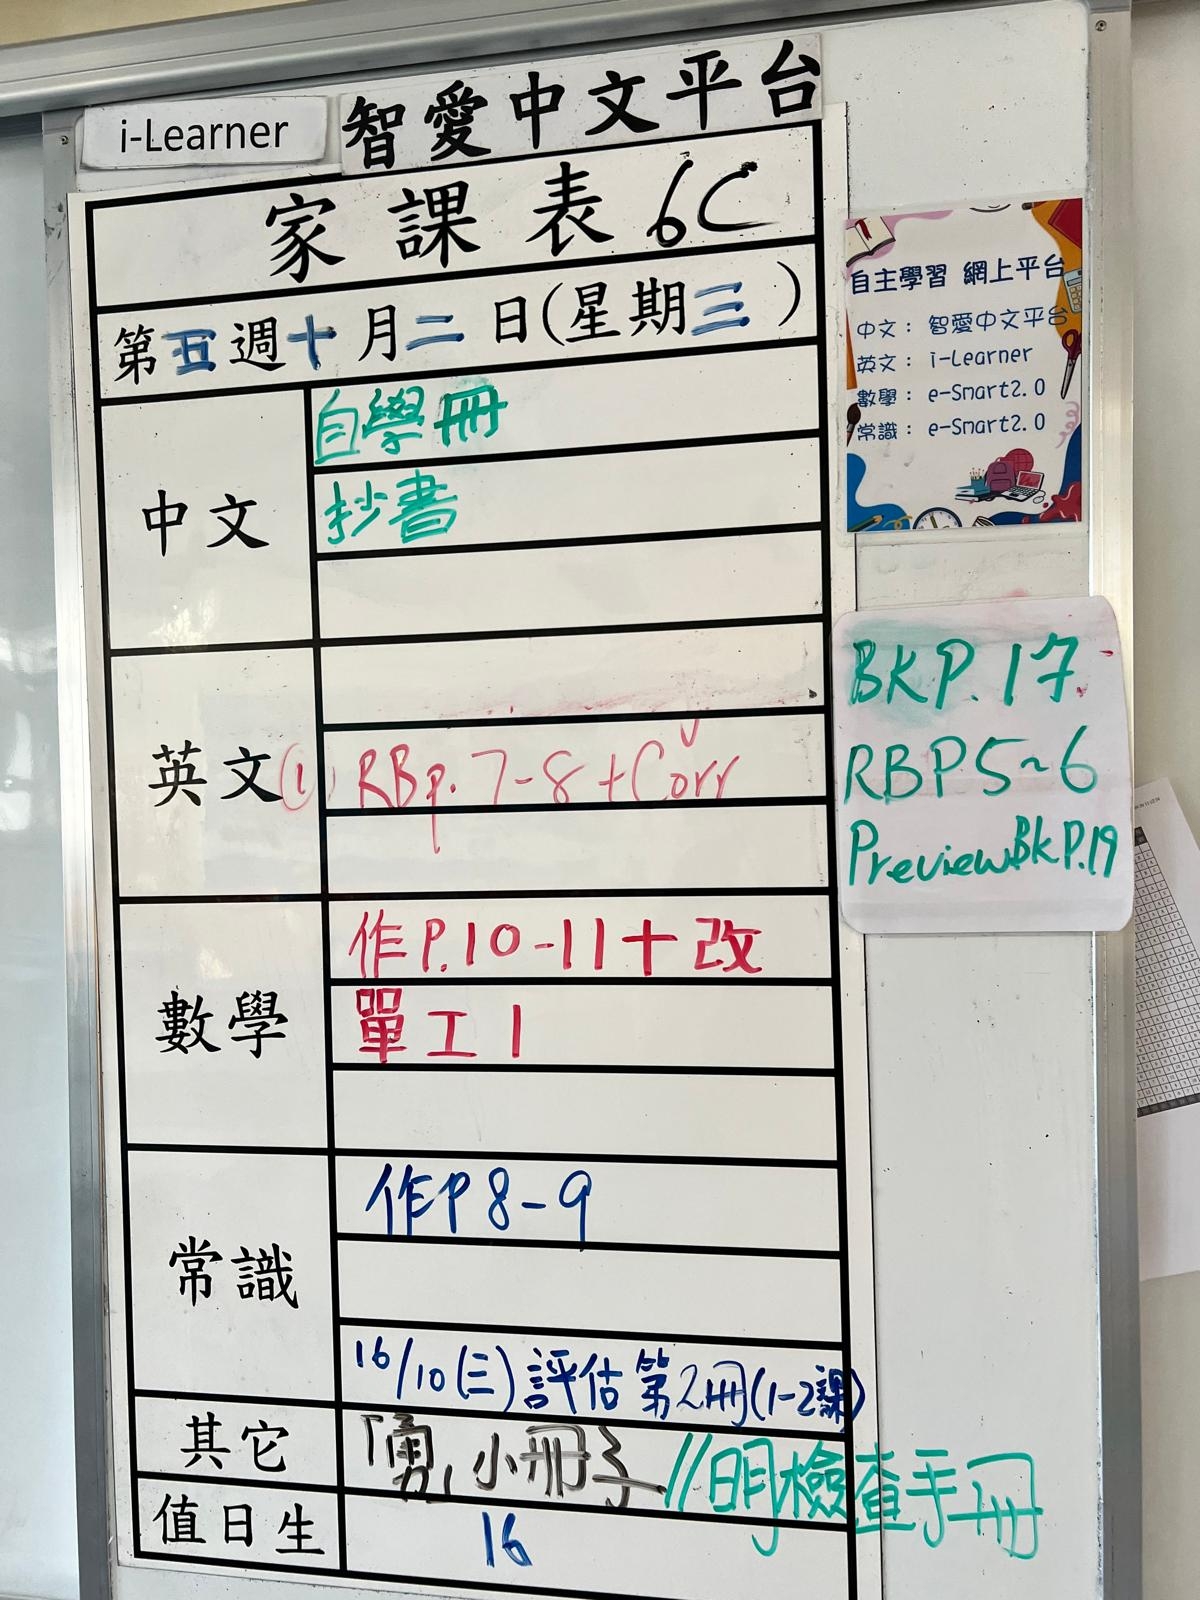 i-Learner 智愛中文平台
家課表 6C
第五週十月二日(星期三)
中文
自學冊
抄書
英文
(1) RBp.7-8+Corr
數學
作P.10-11+改
單工1
常識
作P8-9
16/10(三)評估第2冊(1-2課)
其它
「勇」小冊子//明檢查手冊
值日生
16
自主學習 網上平台
中文：智愛中文平台
英文：i-Learner
數學：e-Smart2.0
常識：e-Smart2.0
BKP.17
RBP5~6
PreviewBkP.19